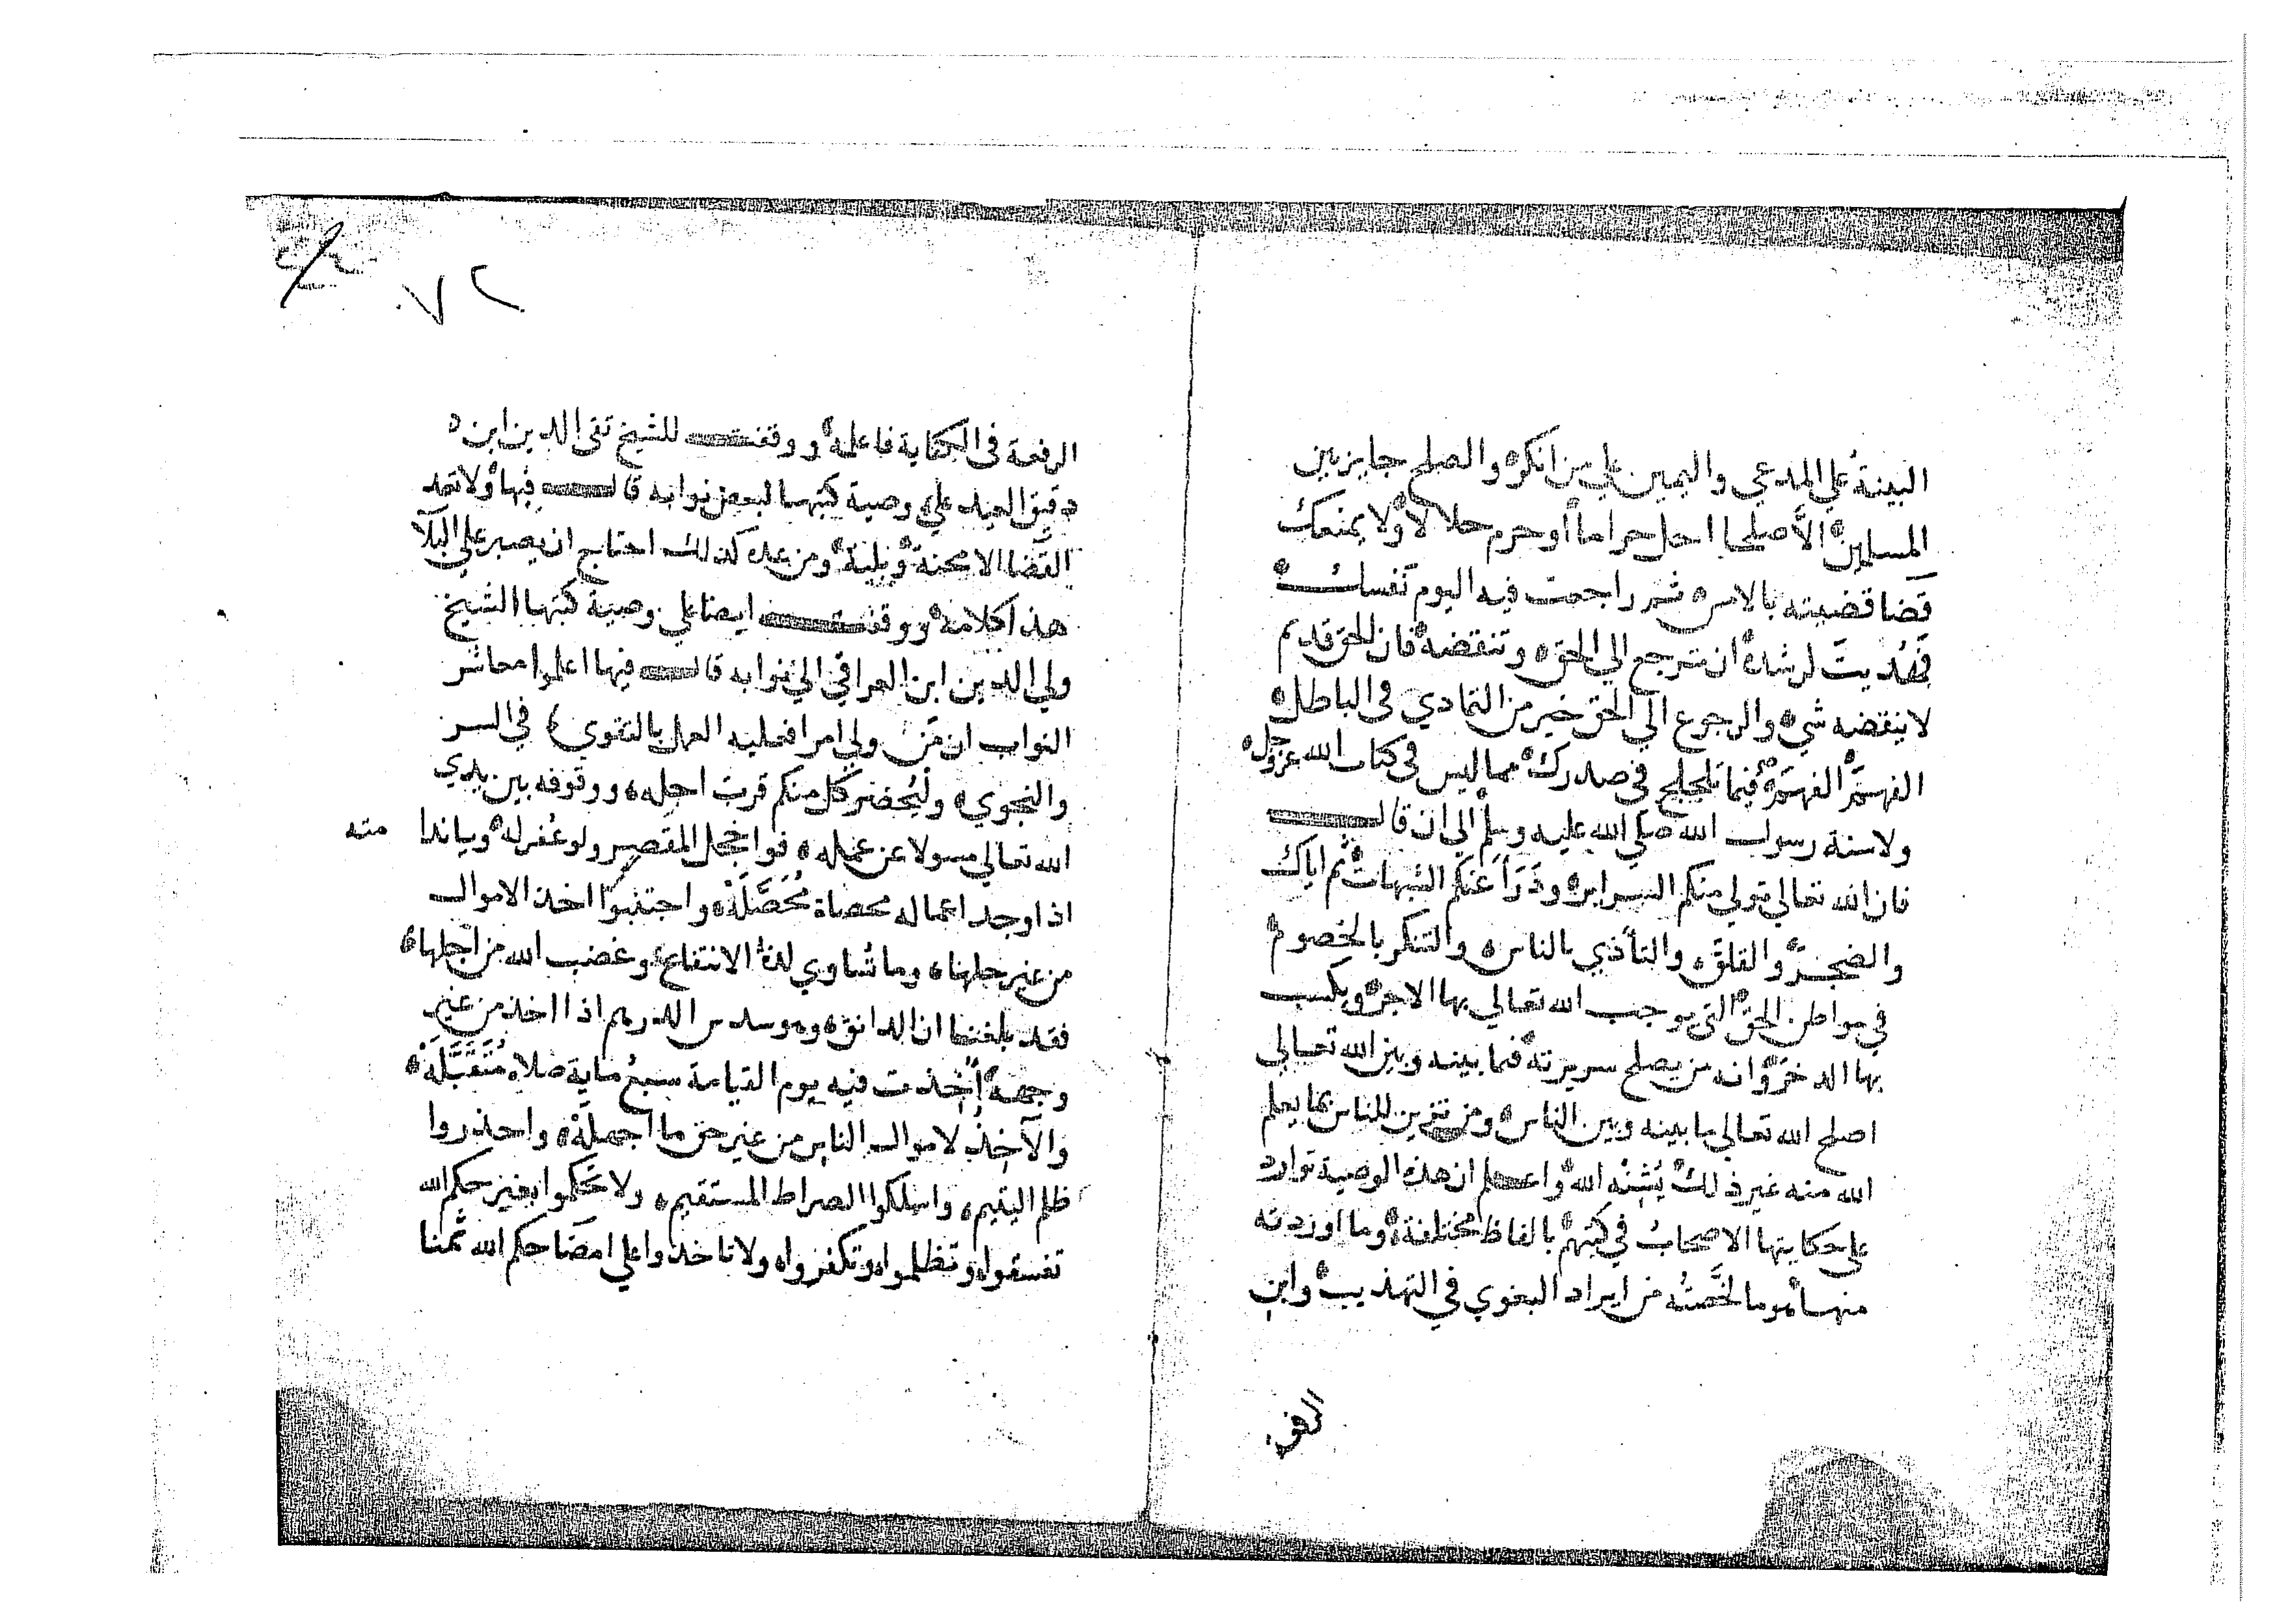 البينةُ علي المدعي واليمين علي من انكره والصلح جايز بين
المسلمين الّا صلحا احل حراماً أو حرم حلالا ولا يمنعك
قضا قضيته بالامس ثم راجعت فيه اليوم نفسك
فهُديتَ لرشدك ان ترجع الي الحق وتنقضه فان الحق قديم
لا ينقضه شي والرجوع الي الحق خير من التمادي في الباطل
الفهمَ الفهمَ فيما تلجلج في صدرك مما ليس في كتاب الله عز وجل
ولا سنة رسول الله صلي الله عليه وسلم الي ان قال
فان الله تعالي تولي منكم السراير ودَرَأ عنكم الشبهات ثم اياك
والضجر والقلق والتأذي بالناس والتنكر بالخصوم
في مواطن الحق التي يوجب الله تعالي بها الاجر ويكسب
بها الذخر وانه من يصلح سريرته فيما بينه وبين الله تعالي
اصلح الله تعالي ما بينه وبين الناس ومن تزين للناس بما يعلم
الله منه غير ذلك يُشِنْه الله واعلم ان هذه الوصية توارد
علي حكايتها الاصحابُ في كتبهم بالفاظ مختلفة وما اوردته
منها هو ما لخَّصتُه من ايراد البغوي في التهذيب وابن
الرفعة
٧٢
الرفعة في الكفاية فاعلمه ووقفت للشيخ تقي الدين ابن
دقيق العيد علي وصية كتبها لبعض نوابه قال فيها ولا تعد
القضا الا محنة وبلية ومن عده كذلك احتاج ان يصبر علي البلآ
هذا كلامه ووقفت ايضا علي وصية كتبها الشيخ
ولي الدين ابن العراقي الي نوابه قال فيها اعلموا معاشر
النواب ان مَن ولي امرا فعليه العمل بالتقوي في السر
والنجوي وليُحضر كل منكم قرب اجله ووقوفه بين يدي
الله تعالي مسولا عن عمله فواخجل المقصر ولو غُفر له وياندا منه
اذا وجد اعماله محصاة مُحَصَّلَة واجتنبوا اخذ الاموال
من غير حلها وما تُساوي لذة الانتفاع وغضب الله من اجلها
فقد بلغنا ان الدانق وهو سدس الدرهم اذا اخذ من غير
وجهه أُخِذت فيه يوم القيامة سبعُ ماية صلاة مُتَقَبَّلَة
والآخِذُ لاموال الناس من غير حق ما اجهلَهُ واحذروا
ظلم اليتيم واسلكوا الصراط المستقيم ولا تحكموا بغير حكم الله
تفسقوا وتظلموا وتكفروا ولا تاخذوا علي امضا حكم الله ثمنا